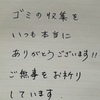 ゴミの収集を
いつも本当に
ありがとうございます!!
ご無事をお祈り
しています